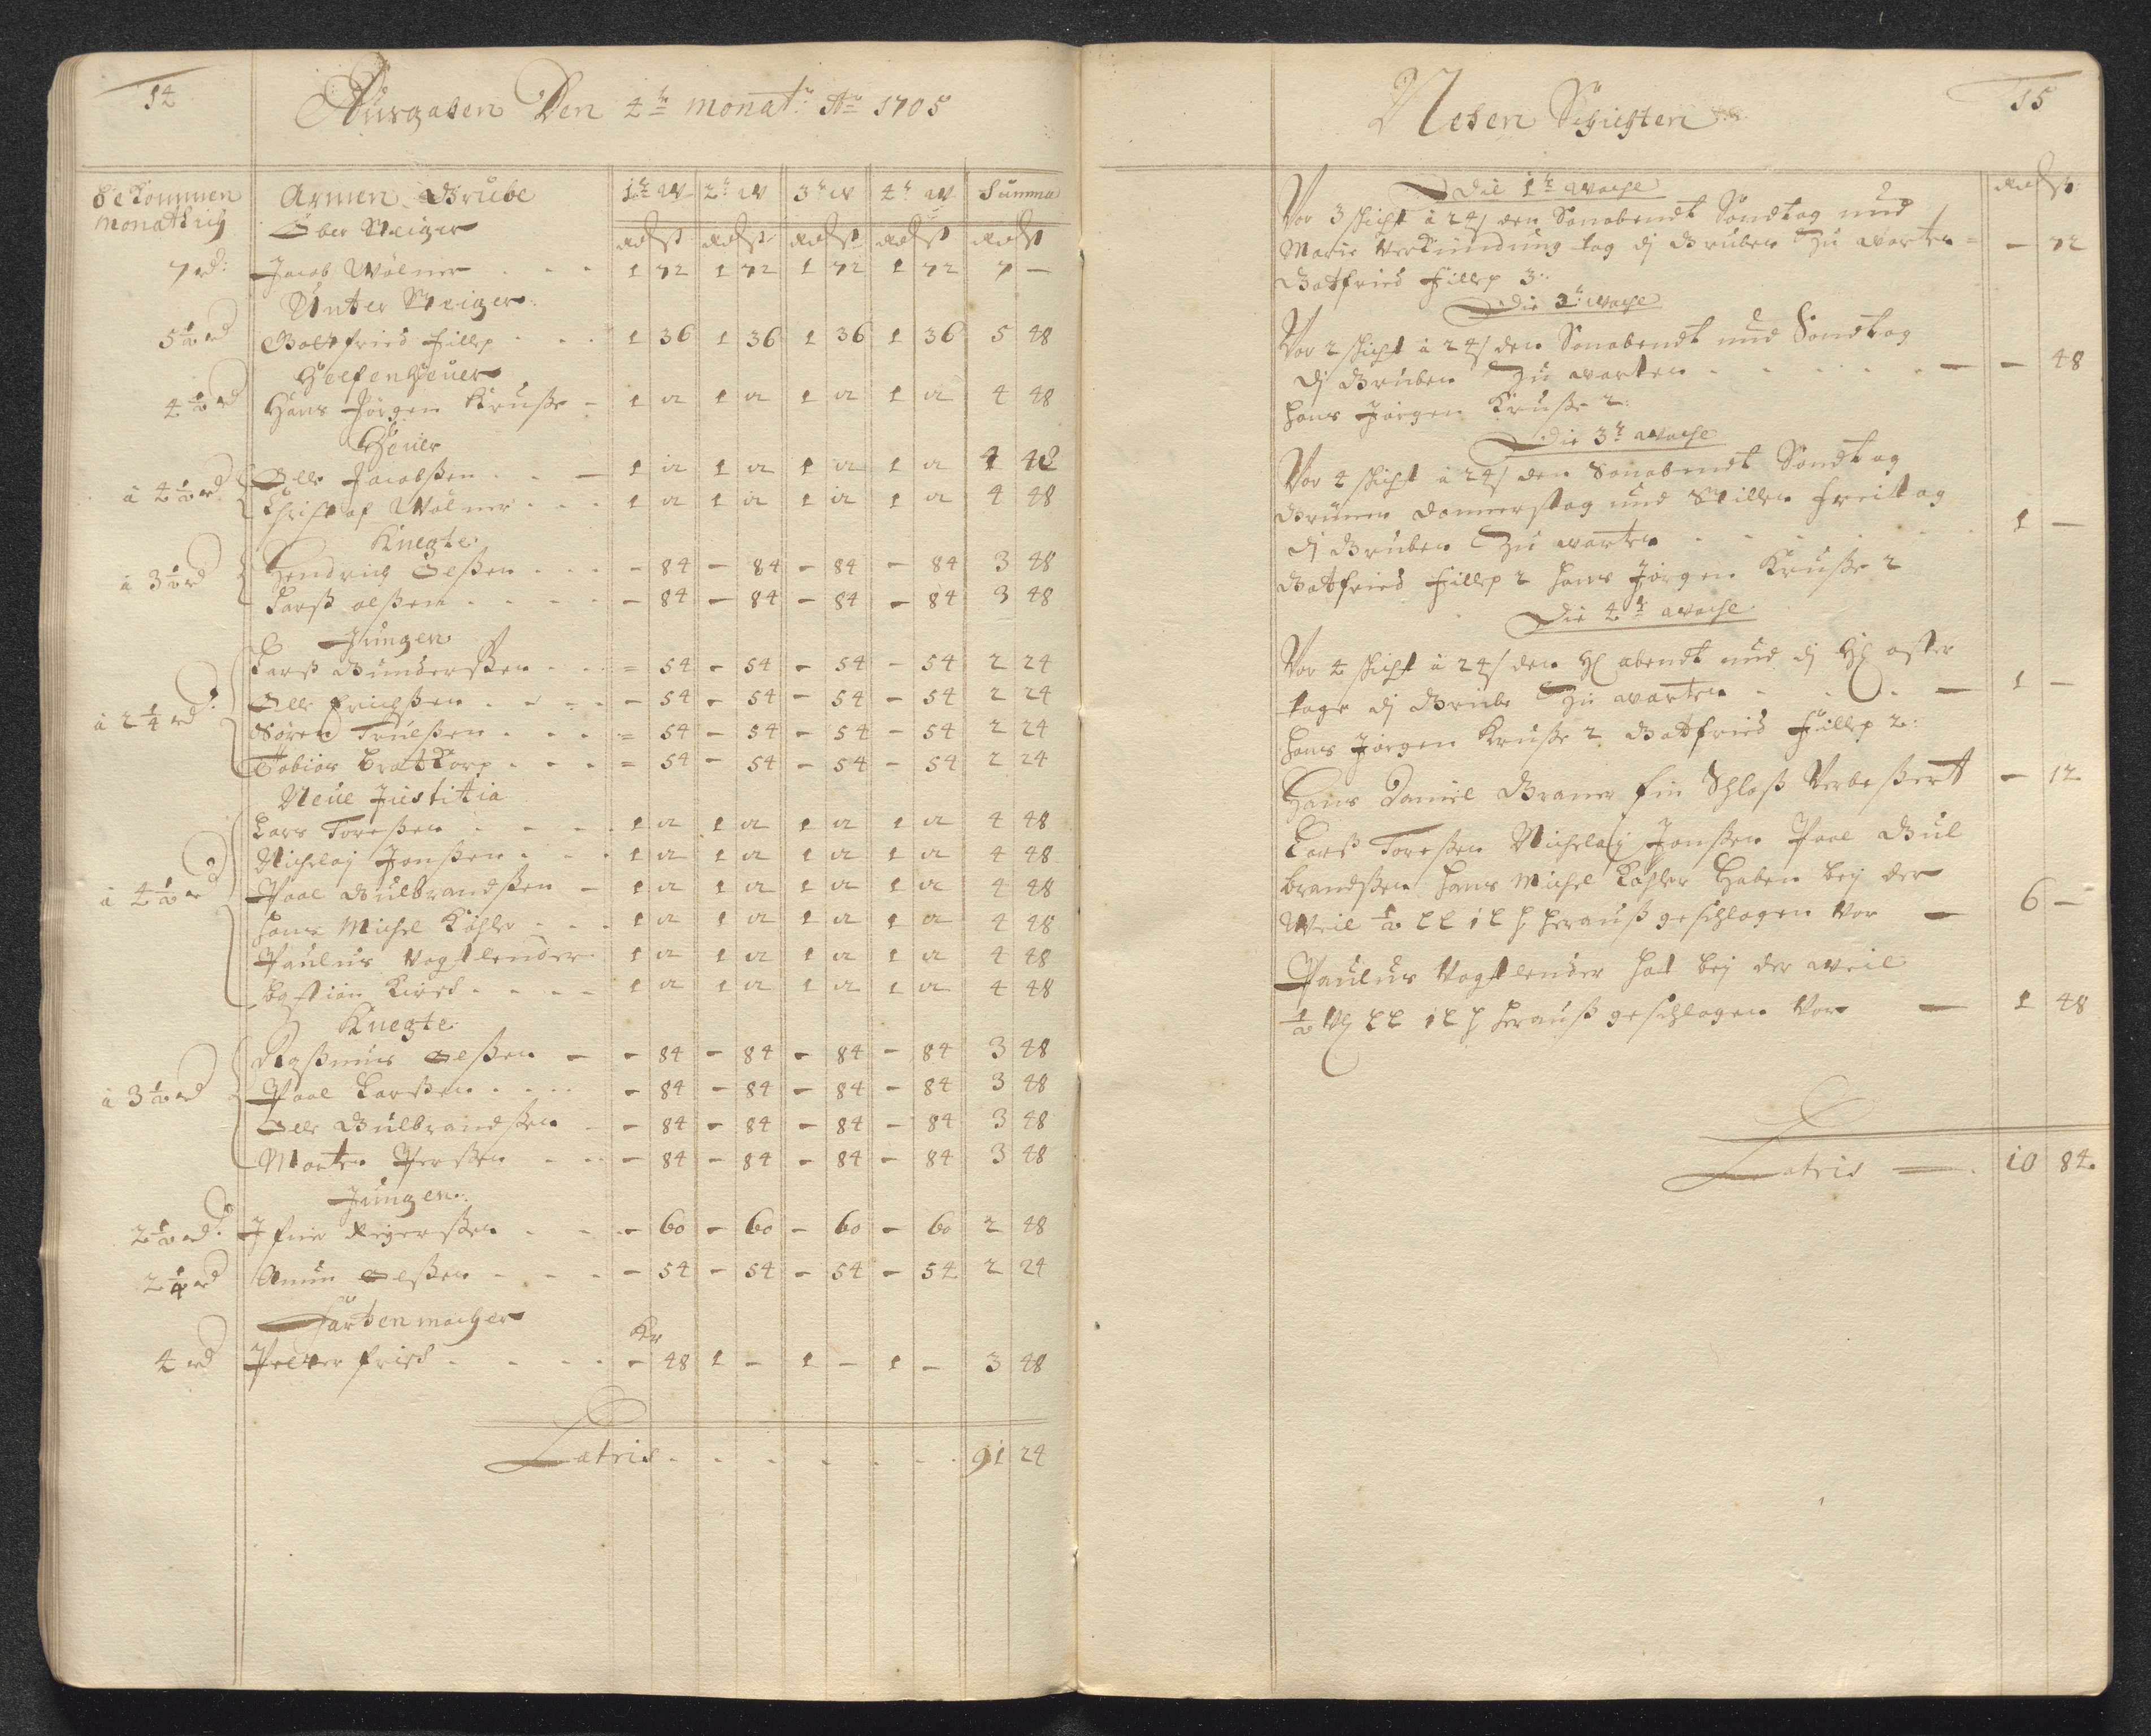 14
Ausgaben Den 4t monat: Ao 1705
bekommen monathlich
Armen Grube 1t W 2t W 3t W 4t W Summa
Ober Steiger
7 rd: Jacob Wölner - - - 1 72 1 72 1 72 1 72 7 -
Unter Steiger
5½ rd Gottfried Fillip - - - 1 36 1 36 1 36 1 36 5 48
Helfenheuer
4½ rd Hans Jörgen Kruße - 1 12 1 12 1 12 1 12 4 48
Heuer
a 4½ rd Olle Jacobßen - - - 1 12 1 12 1 12 1 12 4 48
Christof Wölner - - - 1 12 1 12 1 12 1 12 4 48
Knegte
a 3½ rd Hendrich Olßen - - - - 84 - 84 - 84 - 84 3 48
Larß olßen - - - - - 84 - 84 - 84 - 84 3 48
Jungen
a 2¼ rd Larß Gunderßen - - = 54 - 54 - 54 - 54 2 24
Olle Erichßen - - - - - 54 - 54 - 54 - 54 2 24
Sören Truelßen - - - = 54 - 54 - 54 - 54 2 24
Tobias Bratkorp - - - = 54 - 54 - 54 - 54 2 24
Neue Justitia
a 4½ rd Lars Toreßen - - - - 1 12 1 12 1 12 1 12 4 48
Nichelaj Jonßen - - - 1 12 1 12 1 12 1 12 4 48
Paal Gulbrandßen - 1 12 1 12 1 12 1 12 4 48
Hans Michel Köhler - - - 1 12 1 12 1 12 1 12 4 48
Paulus Vogtlender 1 12 1 12 1 12 1 12 4 48
Bastian - - - - 1 12 1 12 1 12 1 12 4 48
Knegte
a 3½ rd Raßmus olßen - - 84 - 84 - 84 - 84 3 48
Paal Larßen - - - - 84 - 84 - 84 - 84 3 48
Olle Gulbrandßen - - 84 - 84 - 84 - 84 3 48
Morten Perßen - - - 84 - 84 - 84 - 84 3 48
Jungen
2½ rd: - - - 60 - 60 - 60 - 60 2 48
2¼ rd Amun olßen - - - - 54 - 54 - 54 - 54 2 24
4 rd - - - - - 48 1 - 1 - 1 - 3 48
Latris - - - - - - - 91 24
15
Neben Schichten
Die 1t Woche
Vor 3 schicht a 24 s den Sonabendt Söndtag und
Marie Verkündung tag dj Gruben Zu warten = - 72
Gotfried Fillip 3:
Die 2t Woche
Vor 2 schicht a 24 s den Sonabendt und Sondtag
dj Gruben Zu warten - - - - - - 48
Hans Jörgen Kruße 2:
Die 3t Woche
Vor 4 schicht a 24 s den Sonabendt Söndtag
Grünen donnerstag und Stillen freitag
dj Gruben Zu warten - - - - - 1 -
Gotfried Fillip 2 Hans Jörgen Kruße 2
Die 4t Woche
Vor 4 schicht a 24 s den Hl abendt und dj Hl oster
tage dj Grube Zu warten - - - - 1 -
Hans Jörgen Kruße 2 Gotfried Fillip 2:
Hans Daniel Graner Ein Schloß Verbeßert - 12
Larß Toreßen Nichelaj Jonßen Paal Gul
brandßen Hans Michel Köhler Haben bej der
Weil ½ herauß geschlagen Vor - 6 -
Paulus Vogtlender hat bej der weil
½ herauß geschlagen Vor - 1 48
Latris - 10 84